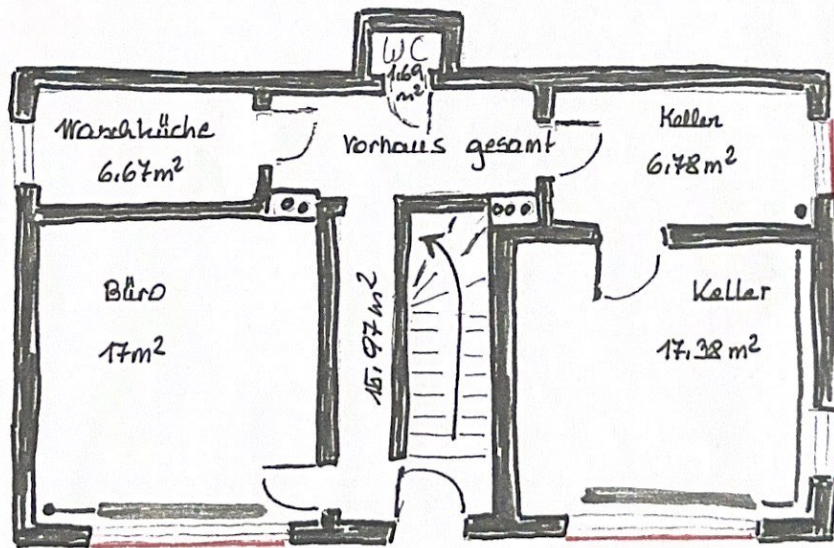 WC
1.69
m²
Waschküche
6.67m²
Vorhaus gesamt
15.97m²
Keller
6.78m²
Büro
17m²
Keller
17.38m²